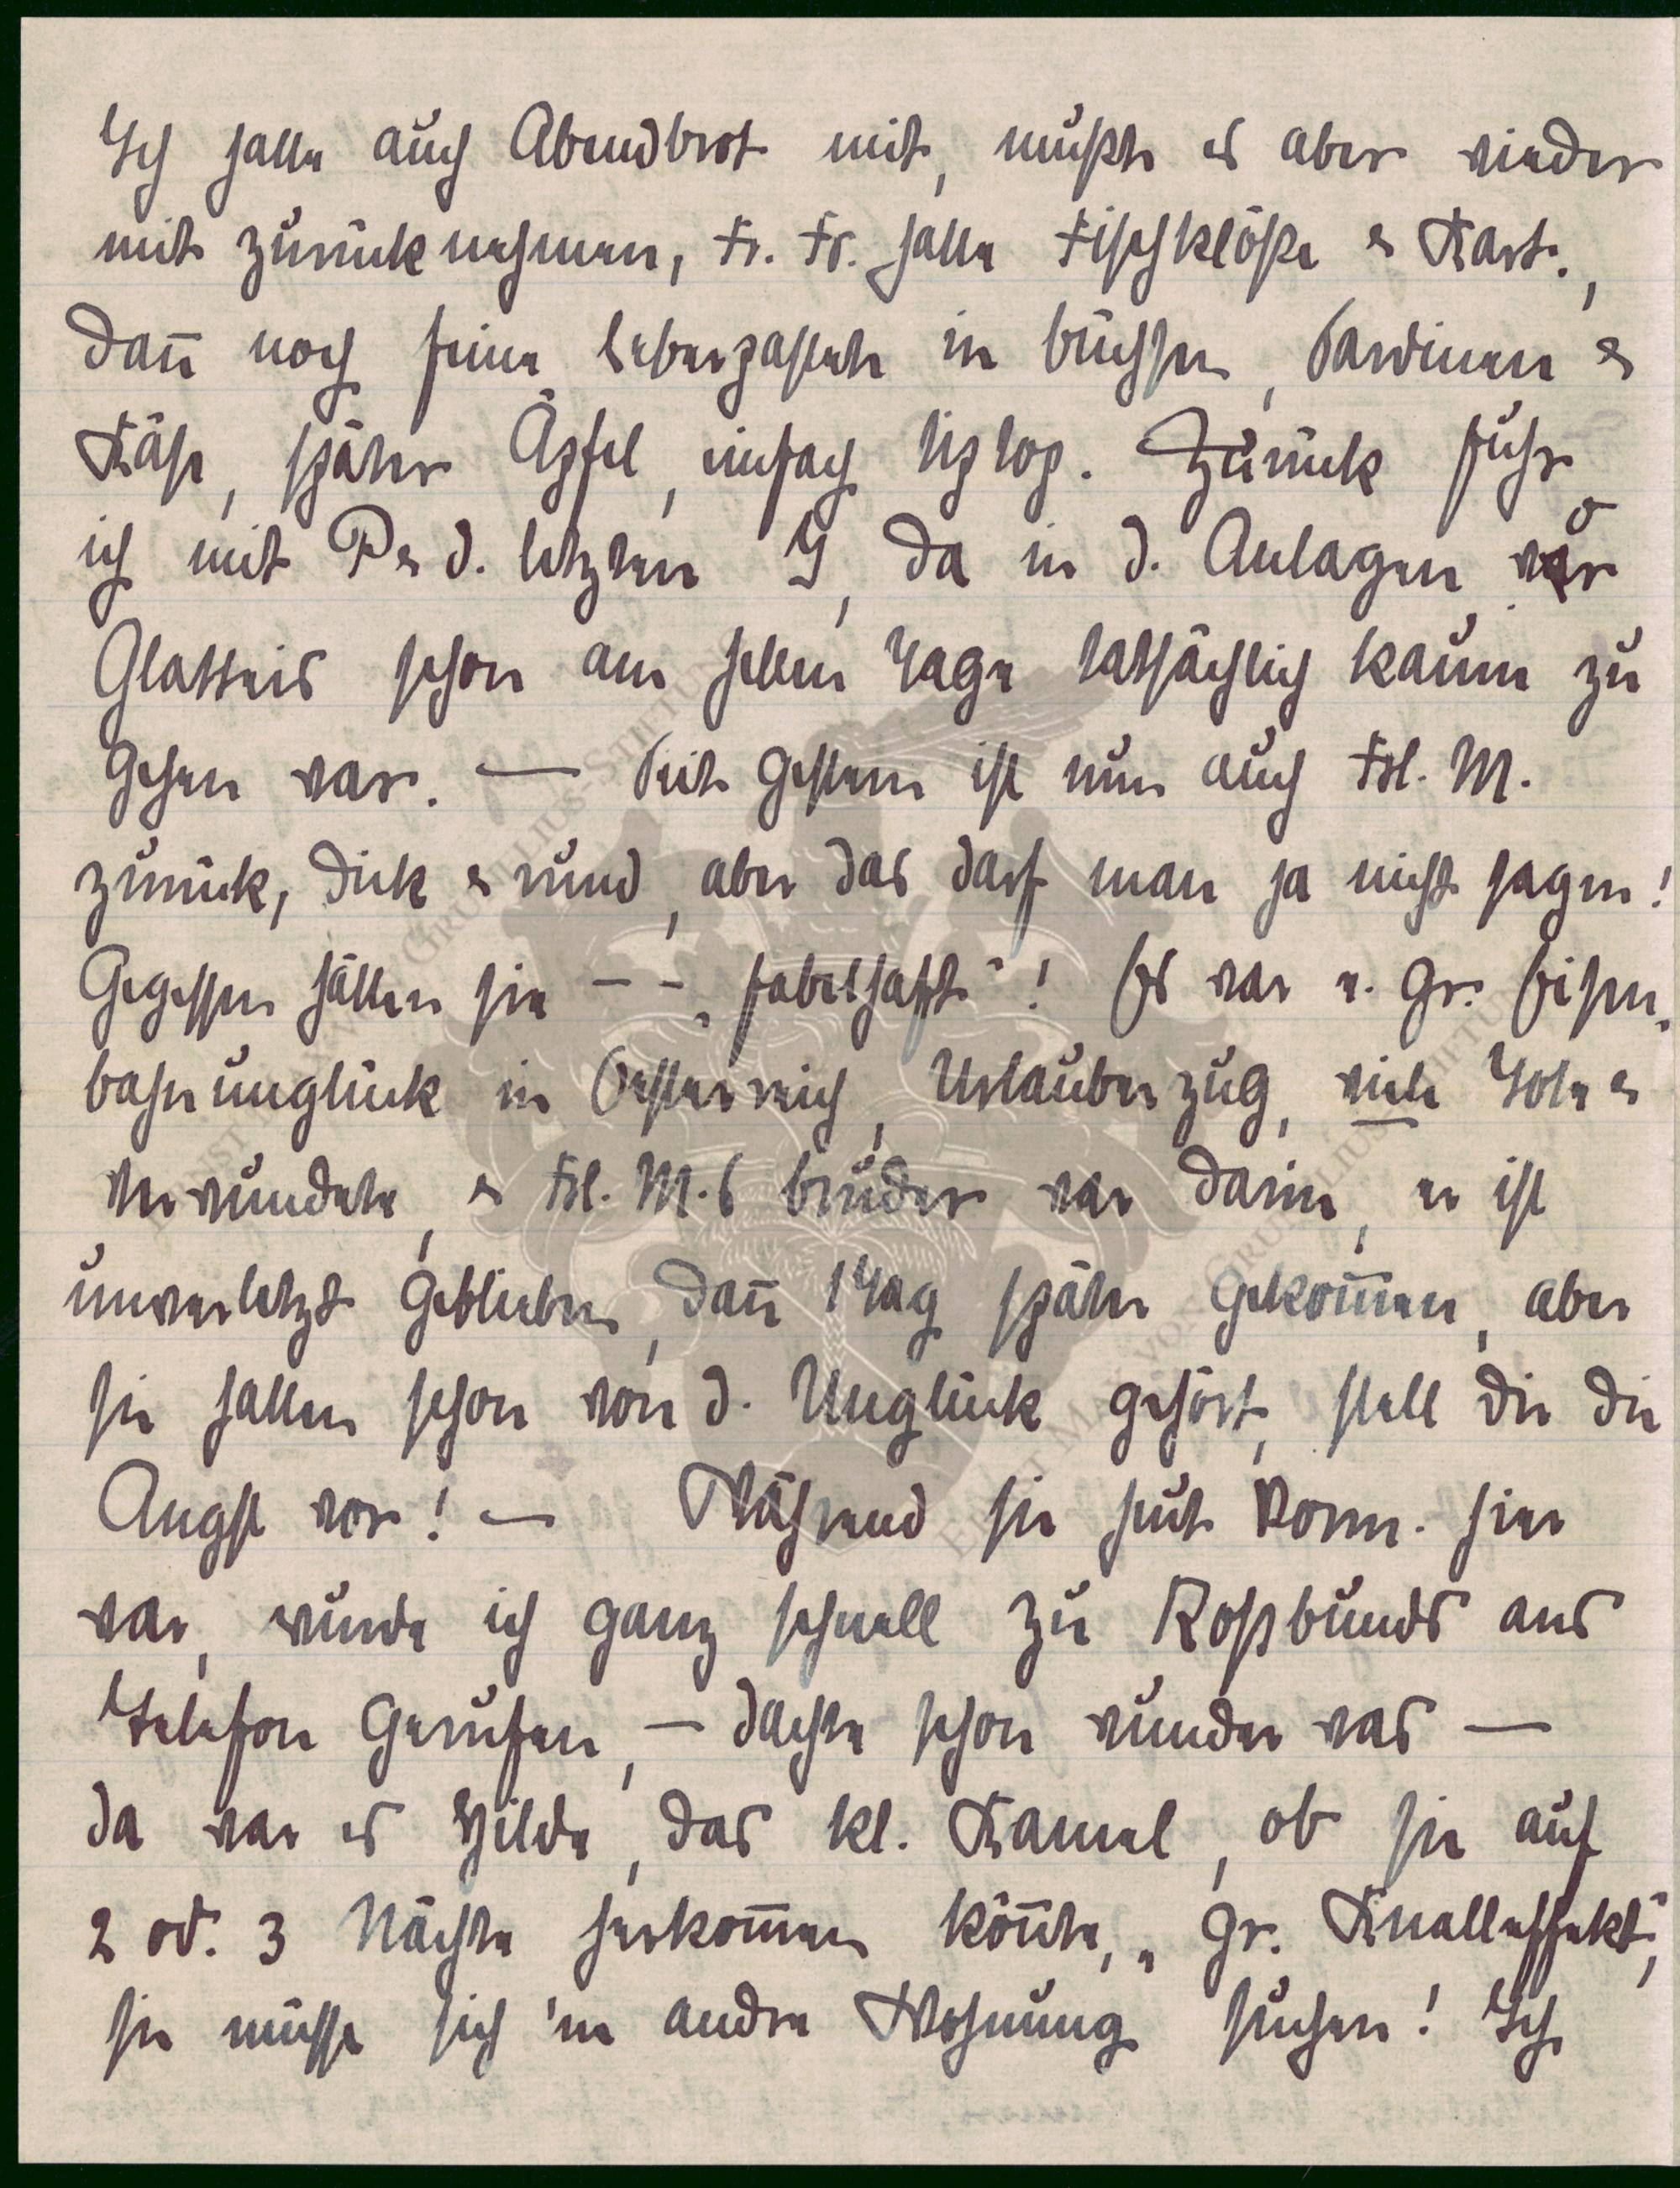 Ich hatte auch Abendbrot mit, mußte es aber wieder
mit zurücknehmen, Fr. Fr. hatte Fischklöße & Kart.,
dann noch feine Leberpastete in Büchsen, Sardinen &
Käse, später Äpfel, einfach tip top. Zurück fuhr
ich mit P & d. letzten 9, da in d. Anlagen vor
Glatteis schon am hellen Tage tatsächlich kaum zu
gehen war. — Seit gestern ist nun auch Frl. M.
zurück, dick & rund, aber das darf man ja nicht sagen!
Gegessen hätten sie - - „fabelhaft"! Es war e. gr. Eisen-
bahnunglück in Oesterreich, Urlauberzug, viele Tote &
Verwundete, & Frl. M.s Bruder war darin, er ist
unverletzt geblieben, dann 1 Tag später gekommen, aber
sie hatten schon von d. Unglück gehört, stell Dir die
Angst vor! — Während sie heute vorm. hier
war, wurde ich ganz schnell zu Roßbunds ans
Telefon gerufen, — dachte schon wunder was —
da war es Hilde, das kl. Kamel, ob sie auf
2 od. 3 Nächte herkommen könnte, „gr. Knalleffekt",
sie müsse sich 'ne andre Wohnung suchen! Ich